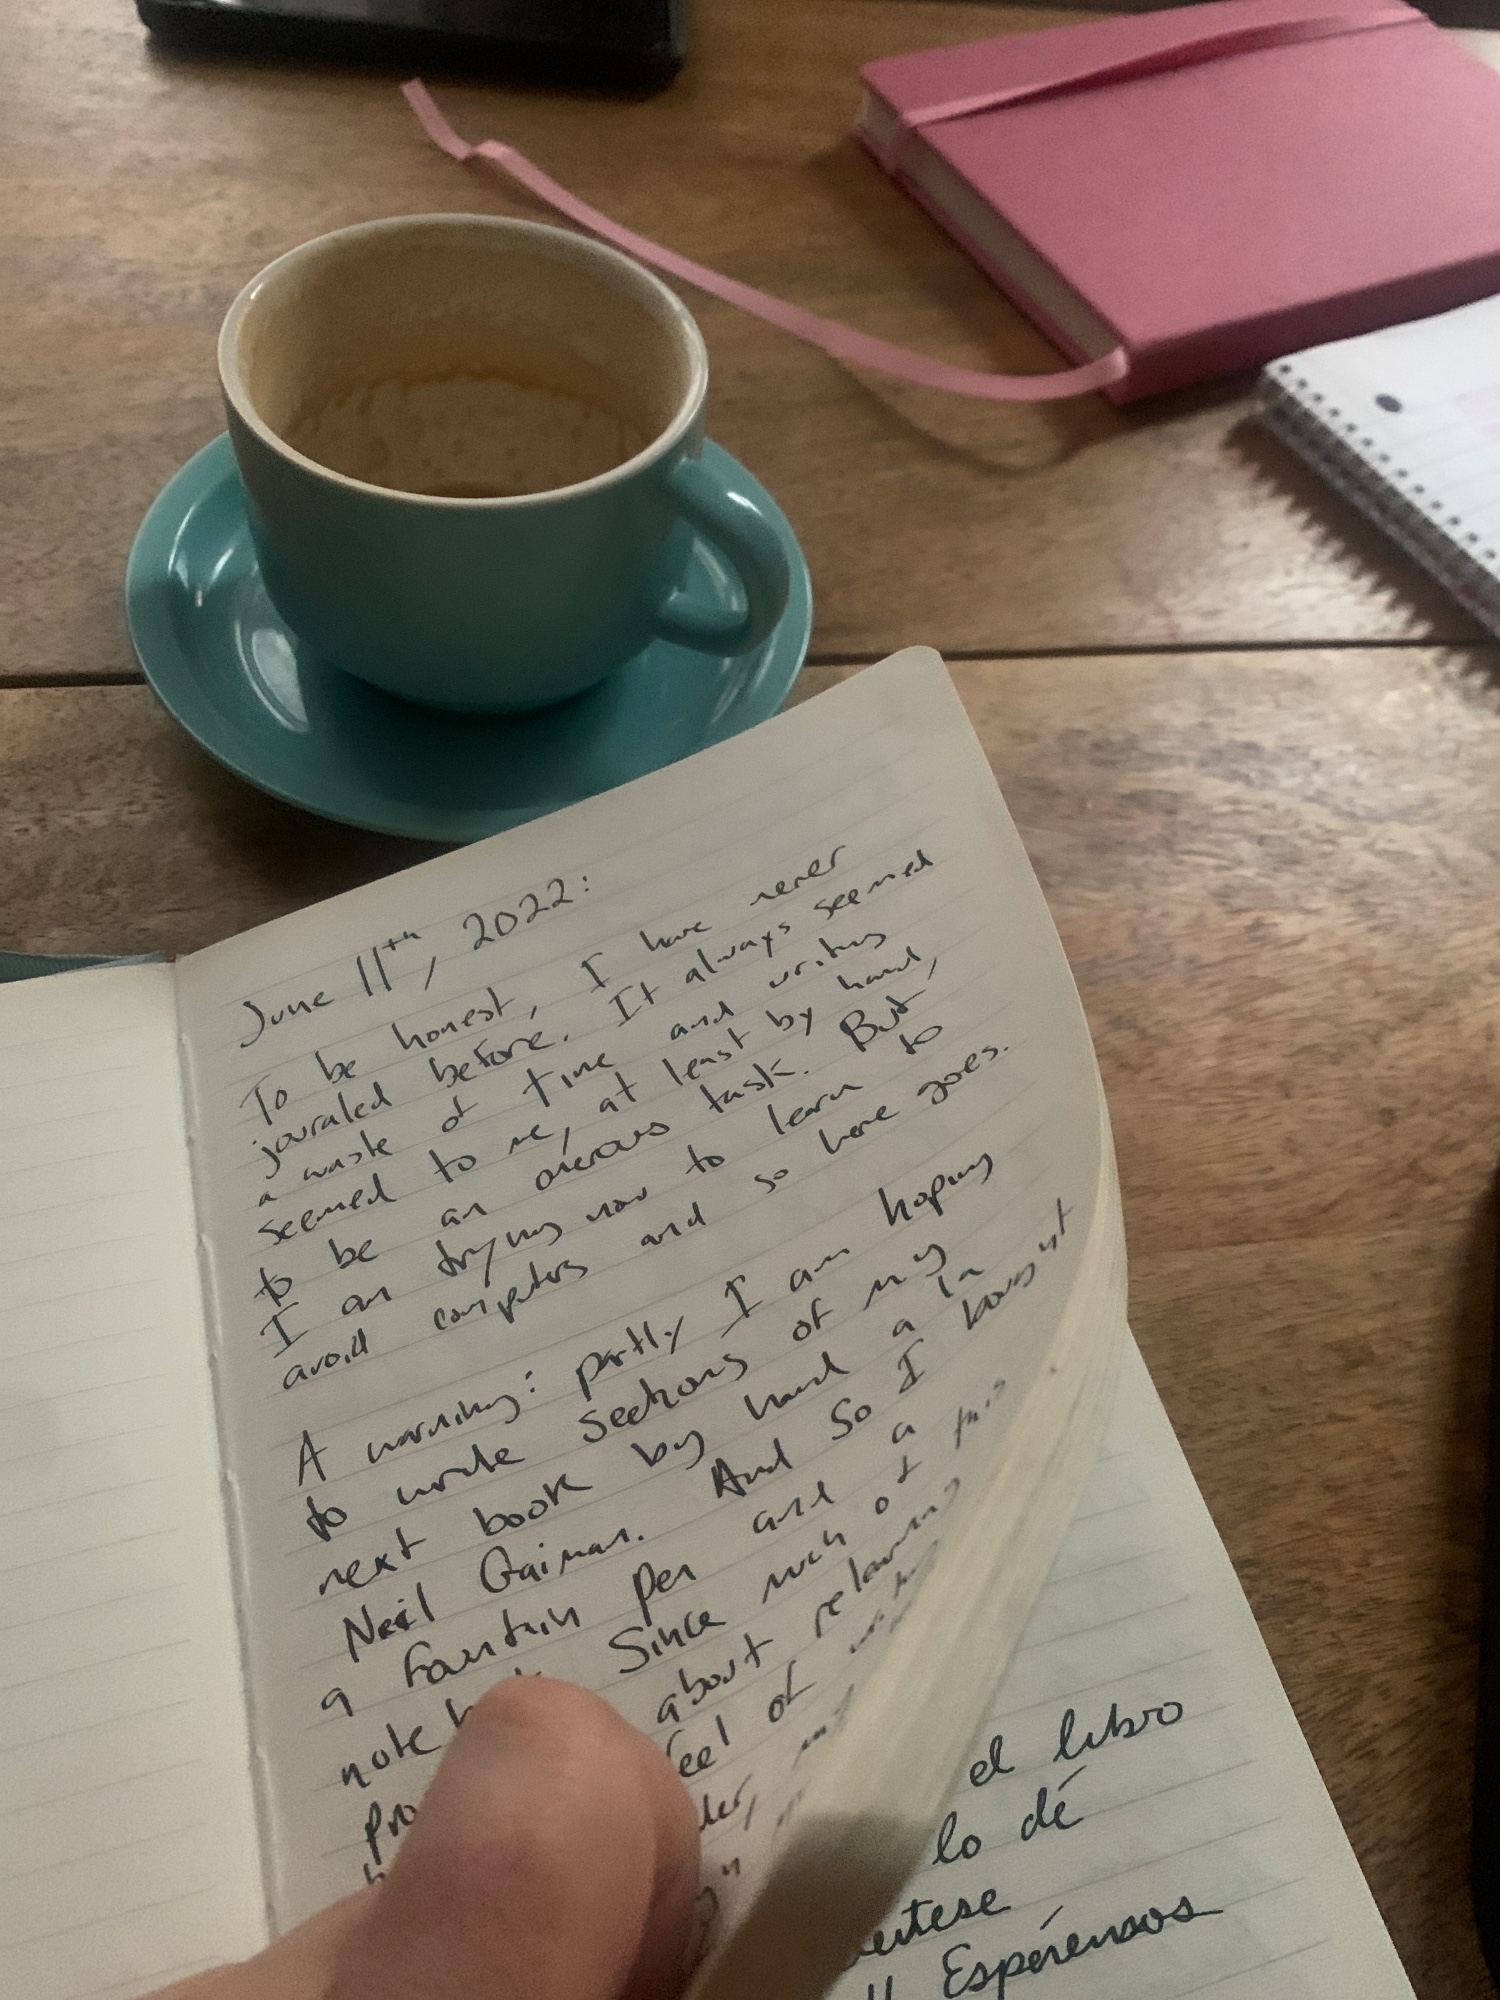 June 11th, 2022:
To be honest, I have never
journaled before. It always seemed
a waste of time and writing
seemed to me, at least by hand,
to be an onerous task. But,
I am trying now to learn to
avoid computers and so here goes.
A warning: partly I am hoping
to write sections of my
next book by hand a la
Neil Gaiman. And so I bought
a fountain pen and a
Since much of this
about relearning
feel of
el libro
lo dé
Esperénsos